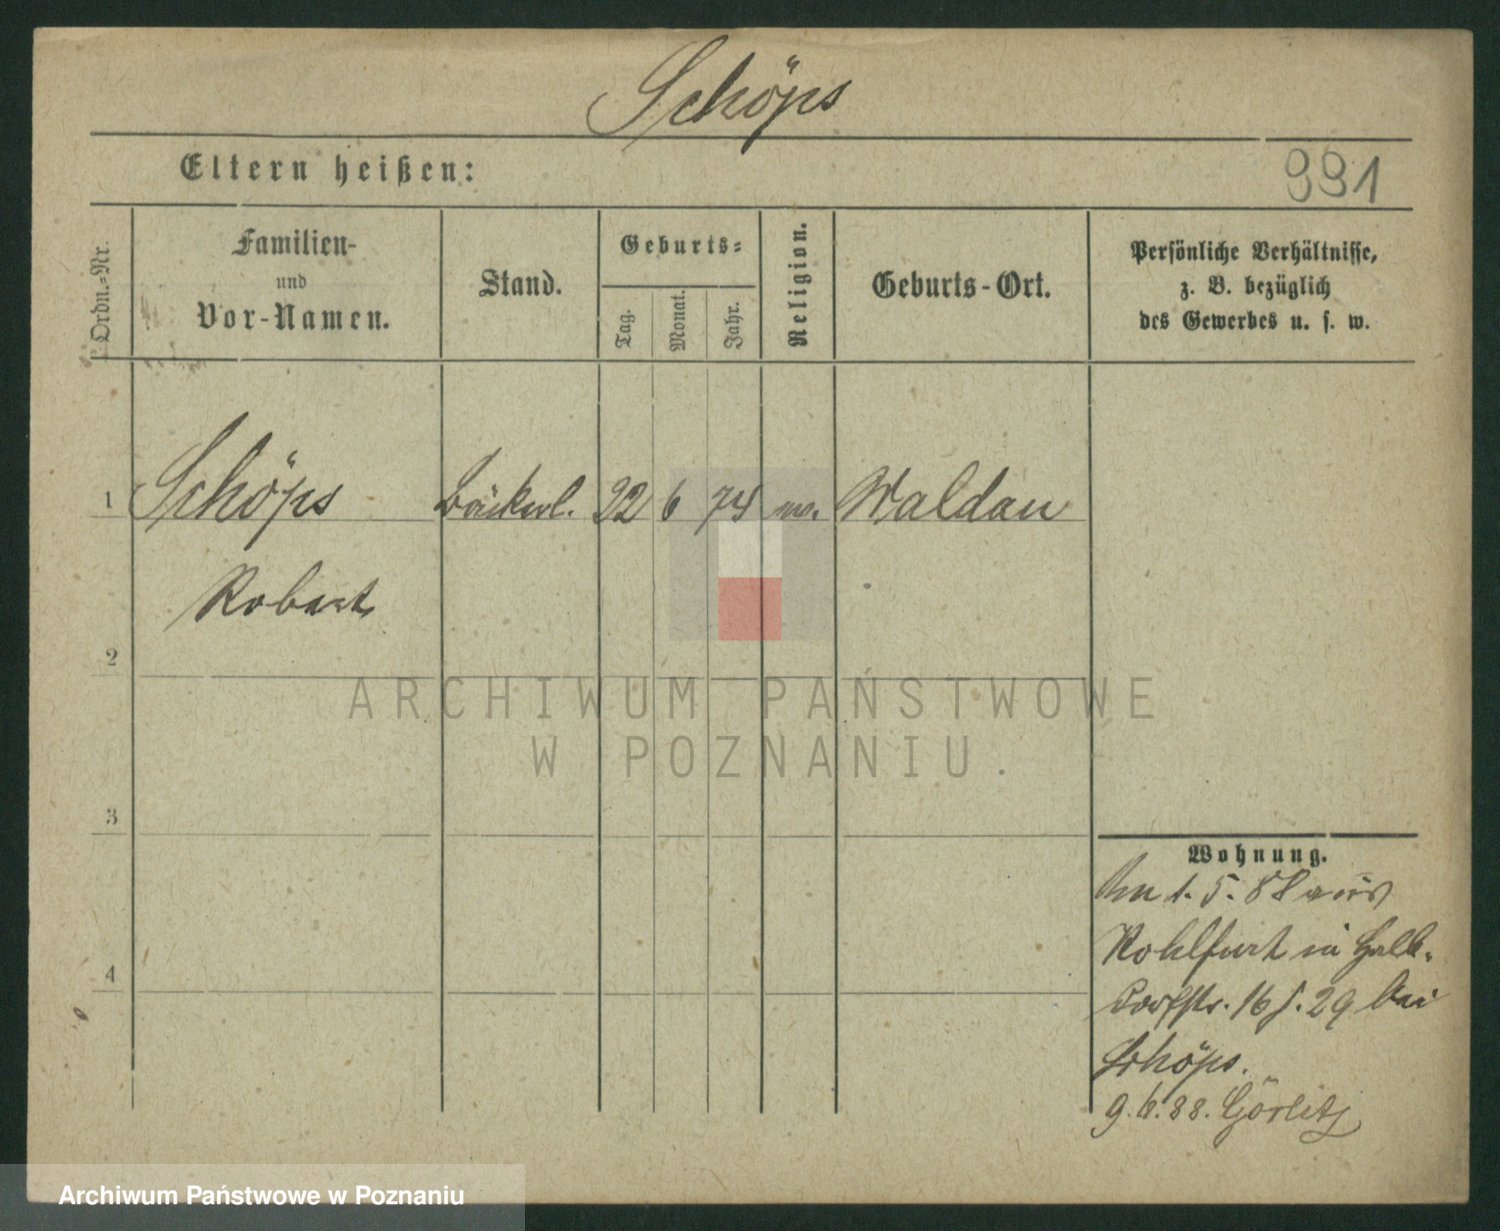 Schöps
Eltern heißen:
991
Ordn.-Nr.
Familien-
und
Vor-Namen.
Stand.
Geburts-
Tag.
Monat.
Jahr.
Religion.
Geburts-Ort.
Persönliche Verhältnisse,
z. B. bezüglich
des Gewerbes u. s. w.
1 Schöps Bäckerl. 22 6 74 Waldau
Robert
2
3
4
Wohnung.
1. 5. 88 aus
Kohlfurt in Halb-
dorfstr. 16 29 bei
Schöps.
9. 6. 88. Görlitz
ARCHIWUM PAŃSTWOWE
W POZNANIU.
Archiwum Państwowe w Poznaniu